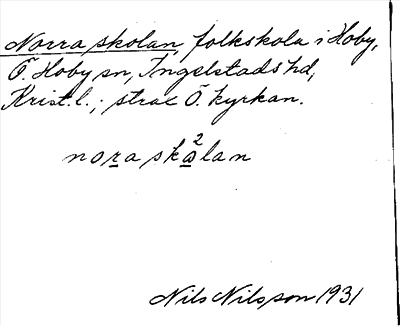 Norra skolan, folkskola i Hoby,
Ö. Hoby sn, Ingelstads hd,
Krist.l.; strax Ö. kyrkan.
nora ska²lan
Nils Nilsson 1931